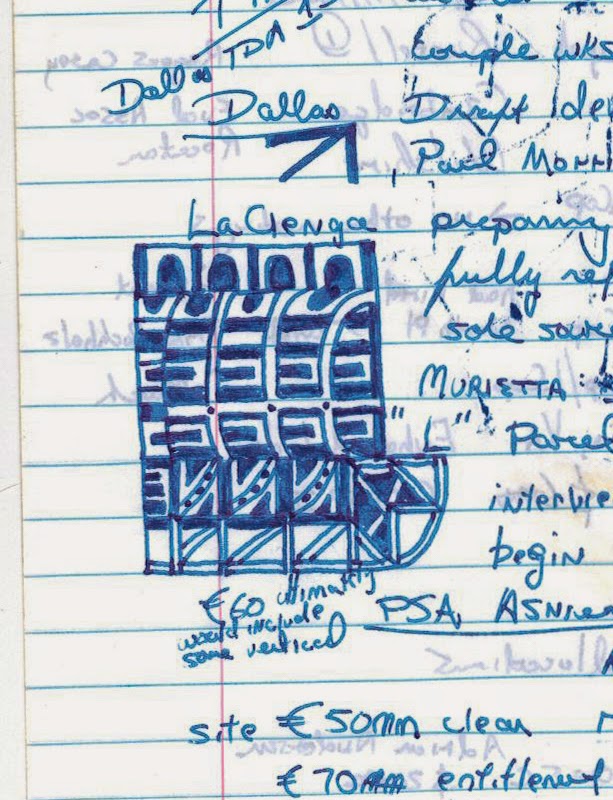 Dallas TDA
Dallas
couple wks
Draft de
Paul Mor
La Cienga
preparing
fully re
sole sou
MURIETTA
"L" Parcel
intervie
begin
€60 ultimately
would include
some vertical
PSA, ASNIE
site €50mm clear
€70mm entitlement